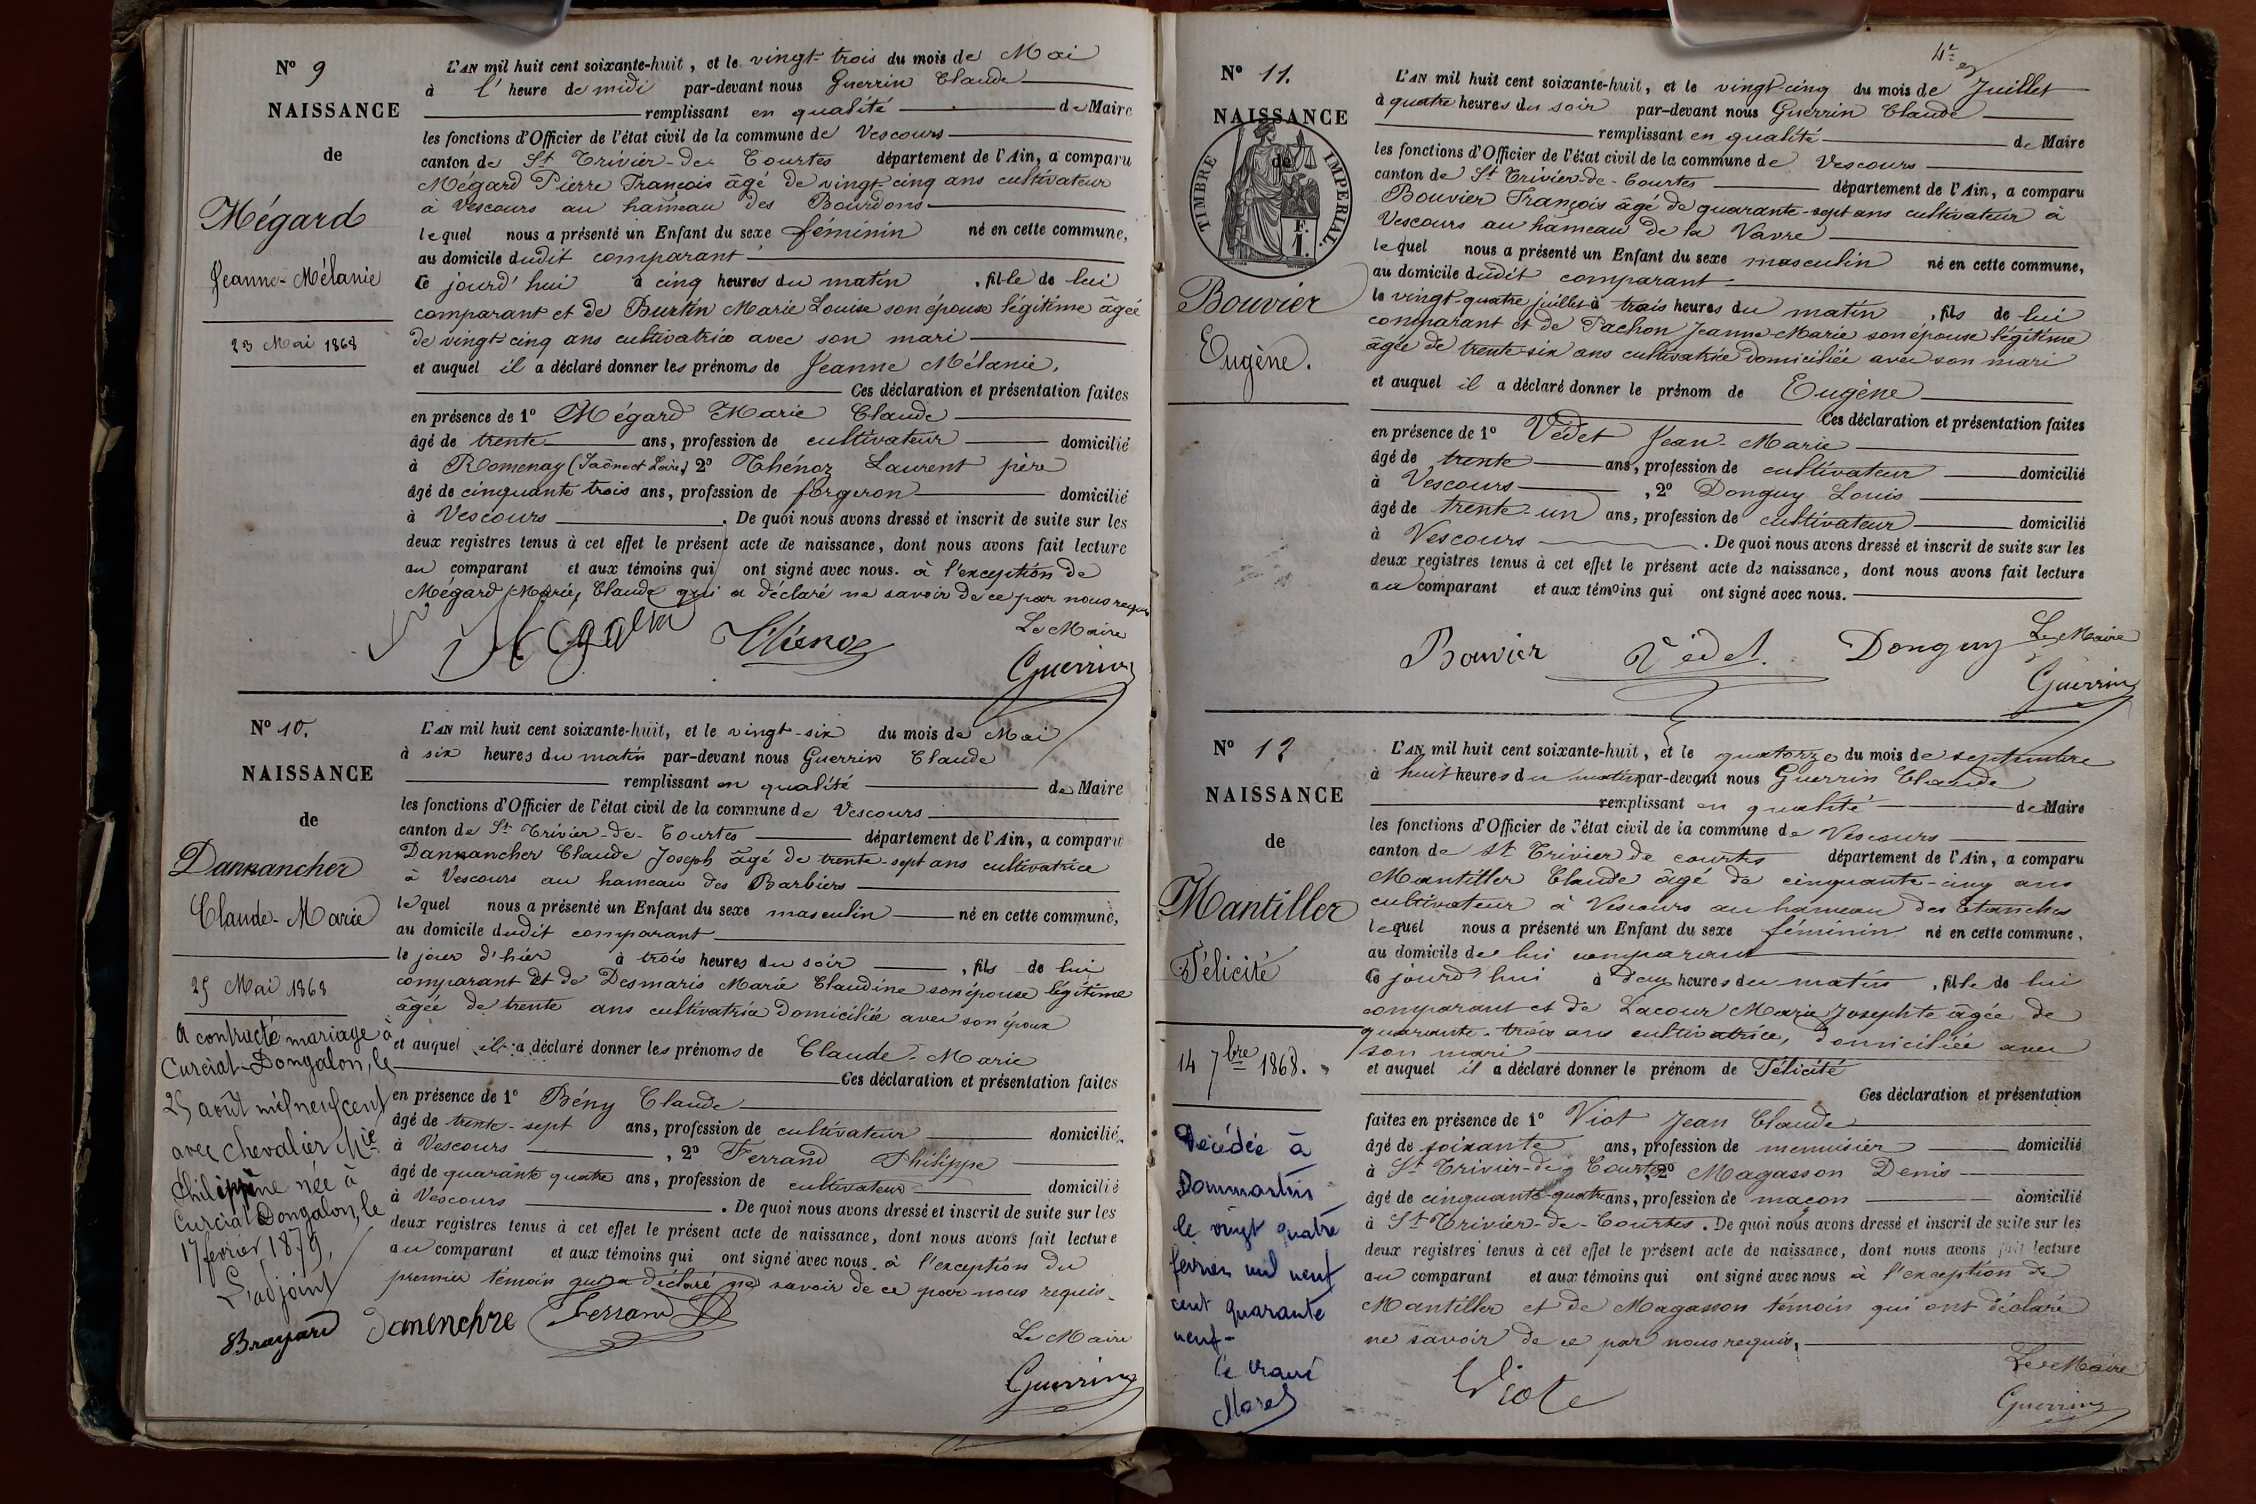 Nº 9
NAISSANCE
de
Mégard
Jeanne-Mélanie
23 Mai 1868
L'AN mil huit cent soixante-huit, et le vingt-trois du mois de Mai
à l'heure de midi par-devant nous Guerrin Claude
remplissant en qualité de Maire
les fonctions d'Officier de l'état civil de la commune de Vescours
canton de St Trivier-de-Courtes département de l'Ain, a comparu
Mégard Pierre François âgé de vingt-cinq ans cultivateur
à Vescours au hameau des Bourdons
lequel nous a présenté un Enfant du sexe féminin né en cette commune,
au domicile dudit comparant
Ce jourd'hui à cinq heures du matin, fille de lui
comparant et de Burtin Marie Louise son épouse légitime âgée
de vingt-cinq ans cultivatrice avec son mari
et auquel il a déclaré donner les prénoms de Jeanne Mélanie.
Ces déclaration et présentation faites
en présence de 1º Mégard Marie Claude
âgé de trente ans, profession de cultivateur domicilié
à Romenay (Saône et Loire) 2º Thénoz Laurent père
âgé de cinquante trois ans, profession de forgeron domicilié
à Vescours. De quoi nous avons dressé et inscrit de suite sur les
deux registres tenus à cet effet le présent acte de naissance, dont nous avons fait lecture
au comparant et aux témoins qui ont signé avec nous. à l'exception de
Mégard Marie Claude qui a déclaré ne savoir de ce par nous requis
Le Maire
Thénoz
Guerrin
Nº 10.
NAISSANCE
de
Dannancher
Claude-Marie
25 Mai 1868
A contracté mariage à
Curciat-Dongalon, le
25 août mil neuf cent
avec Chevalier Mie
Philippine née à
Curciat Dongalon, le
17 février 1879,
L'adjoint
Brayard
L'AN mil huit cent soixante-huit, et le vingt-six du mois de Mai
à six heures du matin par-devant nous Guerrin Claude
remplissant en qualité de Maire
les fonctions d'Officier de l'état civil de la commune de Vescours
canton de St Trivier-de-Courtes département de l'Ain, a comparu
Dannancher Claude Joseph âgé de trente-sept ans cultivatrice
à Vescours au hameau des Barbiers
lequel nous a présenté un Enfant du sexe masculin né en cette commune,
au domicile dudit comparant
le jour d'hier à trois heures du soir, fils de lui
comparant et de Desmaris Marie Claudine son épouse légitime
âgée de trente ans cultivatrice domiciliée avec son époux
et auquel il a déclaré donner les prénoms de Claude-Marie
Ces déclaration et présentation faites
en présence de 1º Bény Claude
âgé de trente-sept ans, profession de cultivateur domicilié
à Vescours, 2º Ferrand Philippe
âgé de quarante quatre ans, profession de cultivateur domicilié
à Vescours. De quoi nous avons dressé et inscrit de suite sur les
deux registres tenus à cet effet le présent acte de naissance, dont nous avons fait lecture
au comparant et aux témoins qui ont signé avec nous. à l'exception du
premier témoin qui a déclaré ne savoir de ce par nous requis.
Danenchre Ferrand
Le Maire
Guerrin
Nº 11.
NAISSANCE
de
TIMBRE IMPERIAL.
Bouvier
Eugène.
L'AN mil huit cent soixante-huit, et le vingt cinq du mois de Juillet
à quatre heures du soir par-devant nous Guerrin Claude
remplissant en qualité de Maire
les fonctions d'Officier de l'état civil de la commune de Vescours
canton de St Trivier-de-Courtes département de l'Ain, a comparu
Bouvier François âgé de quarante-sept ans cultivateur à
Vescours au hameau de la Vavre
lequel nous a présenté un Enfant du sexe masculin né en cette commune,
au domicile dudit comparant
le vingt-quatre juillet à trois heures du matin, fils de lui
comparant et de Pachon Jeanne-Marie son épouse légitime
âgée de trente six ans cultivatrice domiciliée avec son mari
et auquel il a déclaré donner le prénom de Eugène
Ces déclaration et présentation faites
en présence de 1º Védet Jean-Marie
âgé de trente ans, profession de cultivateur domicilié
à Vescours, 2º Donguy Louis
âgé de trente-un ans, profession de cultivateur domicilié
à Vescours. De quoi nous avons dressé et inscrit de suite sur les
deux registres tenus à cet effet le présent acte de naissance, dont nous avons fait lecture
au comparant et aux témoins qui ont signé avec nous.
Bouvier Védet. Donguy Le Maire
Guerrin
Nº 12
NAISSANCE
de
Mantiller
Félicité
14 7bre 1868.
Décédée à
Dommartin
le vingt quatre
fevrier mil neuf
cent quarante
neuf-
L'AN mil huit cent soixante-huit, et le quatorze du mois de septembre
à huit heures du matin par-devant nous Guerrin Claude
remplissant en qualité de Maire
les fonctions d'Officier de l'état civil de la commune de Vescours
canton de St Trivier de courtes département de l'Ain, a comparu
Mantiller Claude âgé de cinquante-cinq ans
cultivateur à Vescours au hameau des Etanches
lequel nous a présenté un Enfant du sexe féminin né en cette commune,
au domicile de lui comparant
Ce jourd'hui à deux heures du matin, fille de lui
comparant et de Lacour Marie Josephte âgée de
quarante-trois ans cultivatrice, domiciliée avec
son mari
et auquel il a déclaré donner le prénom de Félicité
Ces déclaration et présentation
faites en présence de 1º Viot Jean Claude
âgé de soixante ans, profession de menuisier domicilié
à St Trivier-de-Courtes, 2º Magasson Denis
âgé de cinquante-quatre ans, profession de maçon domicilié
à St Trivier-de-Courtes. De quoi nous avons dressé et inscrit de suite sur les
deux registres tenus à cet effet le présent acte de naissance, dont nous avons fait lecture
au comparant et aux témoins qui ont signé avec nous à l'exception de
Mantiller et de Magasson témoin qui ont déclaré
ne savoir de ce par nous requis,
Le Maire
Guerrin